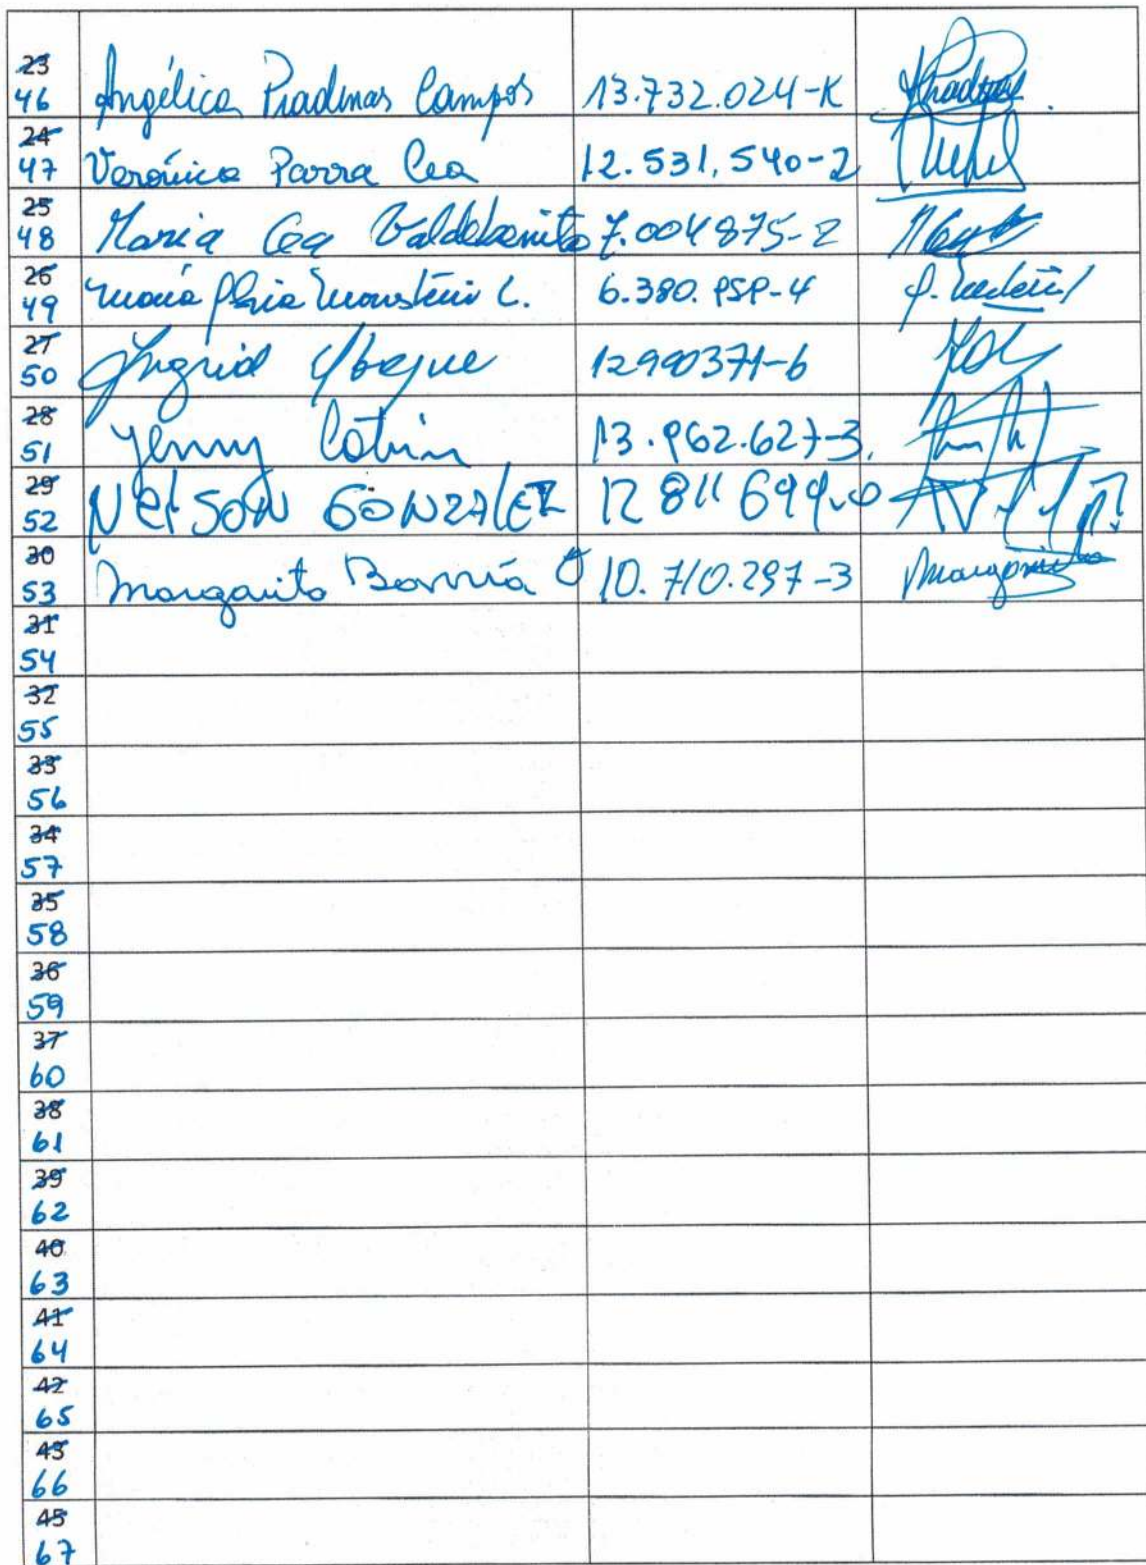 23
46 Angélica Pradenas Campos 13.732.024-K
24
47 Verónica Parra Cea 12.531.540-2
25
48 Maria Cea Valdebenito 7.004875-2
26
49 María L. 6.380.959-4
27
50 Ingrid 12990371-6
28
51 Jenny Catrin 13.962.627-3.
29
52 NelSON GONZAlEZ 12 811 699-0
30
53 Margarita Barría O 10.710.297-3 Margarita
31
54
32
55
33
56
34
57
35
58
36
59
37
60
38
61
39
62
40
63
41
64
42
65
43
66
45
67